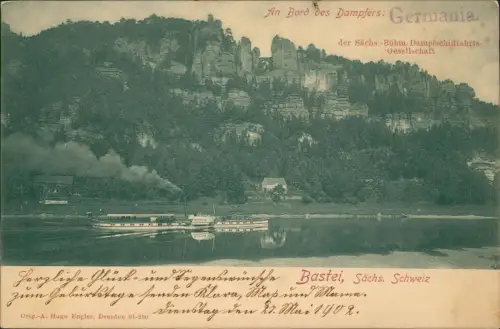 An Bord des Dampfers: Germania.
der Sächs.-Böhm. Dampfschiffahrts-
Gesellschaft
Bastei, Sächs. Schweiz
Herzliche Glück- und Segenswünsche
zum Geburtstage senden Klara, Max und Mama.
Dienstag den 27. Mai 1902.
Orig.-A. Hugo Engler, Dresden